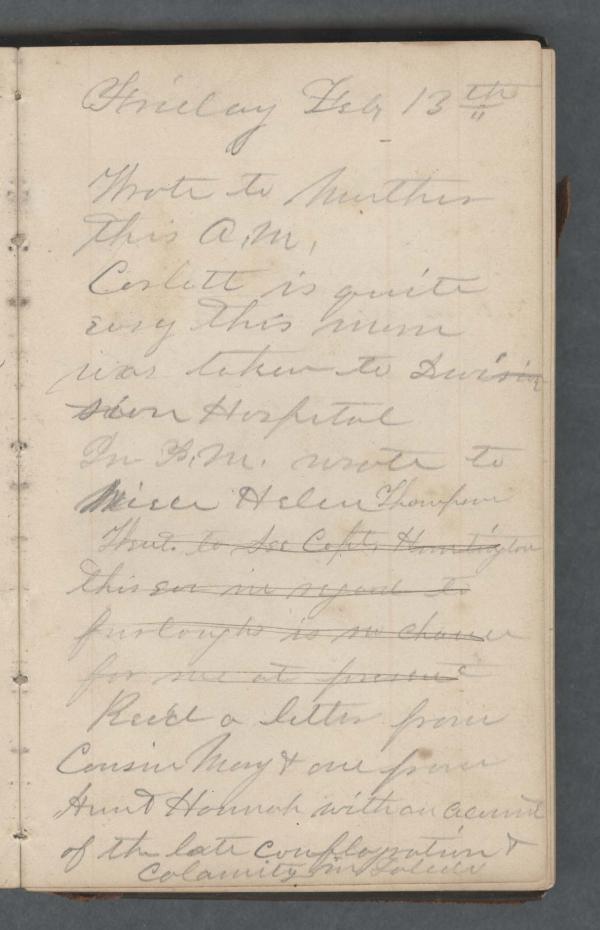 Friday Feb 13th
Wrote to Mother
this A.M.
Corlett is quite
easy this morn
was taken to Divisio
sion Hospital
In P.M. wrote to
Miss Helen Thompson
Went to see Capt. Huntington
this eve in regard to
furloughs is no chance
for me at present
Rec'd a letter from
Cousin Mary & one from
Aunt Hannah with an account
of the late conflagration &
calamity in Toledo